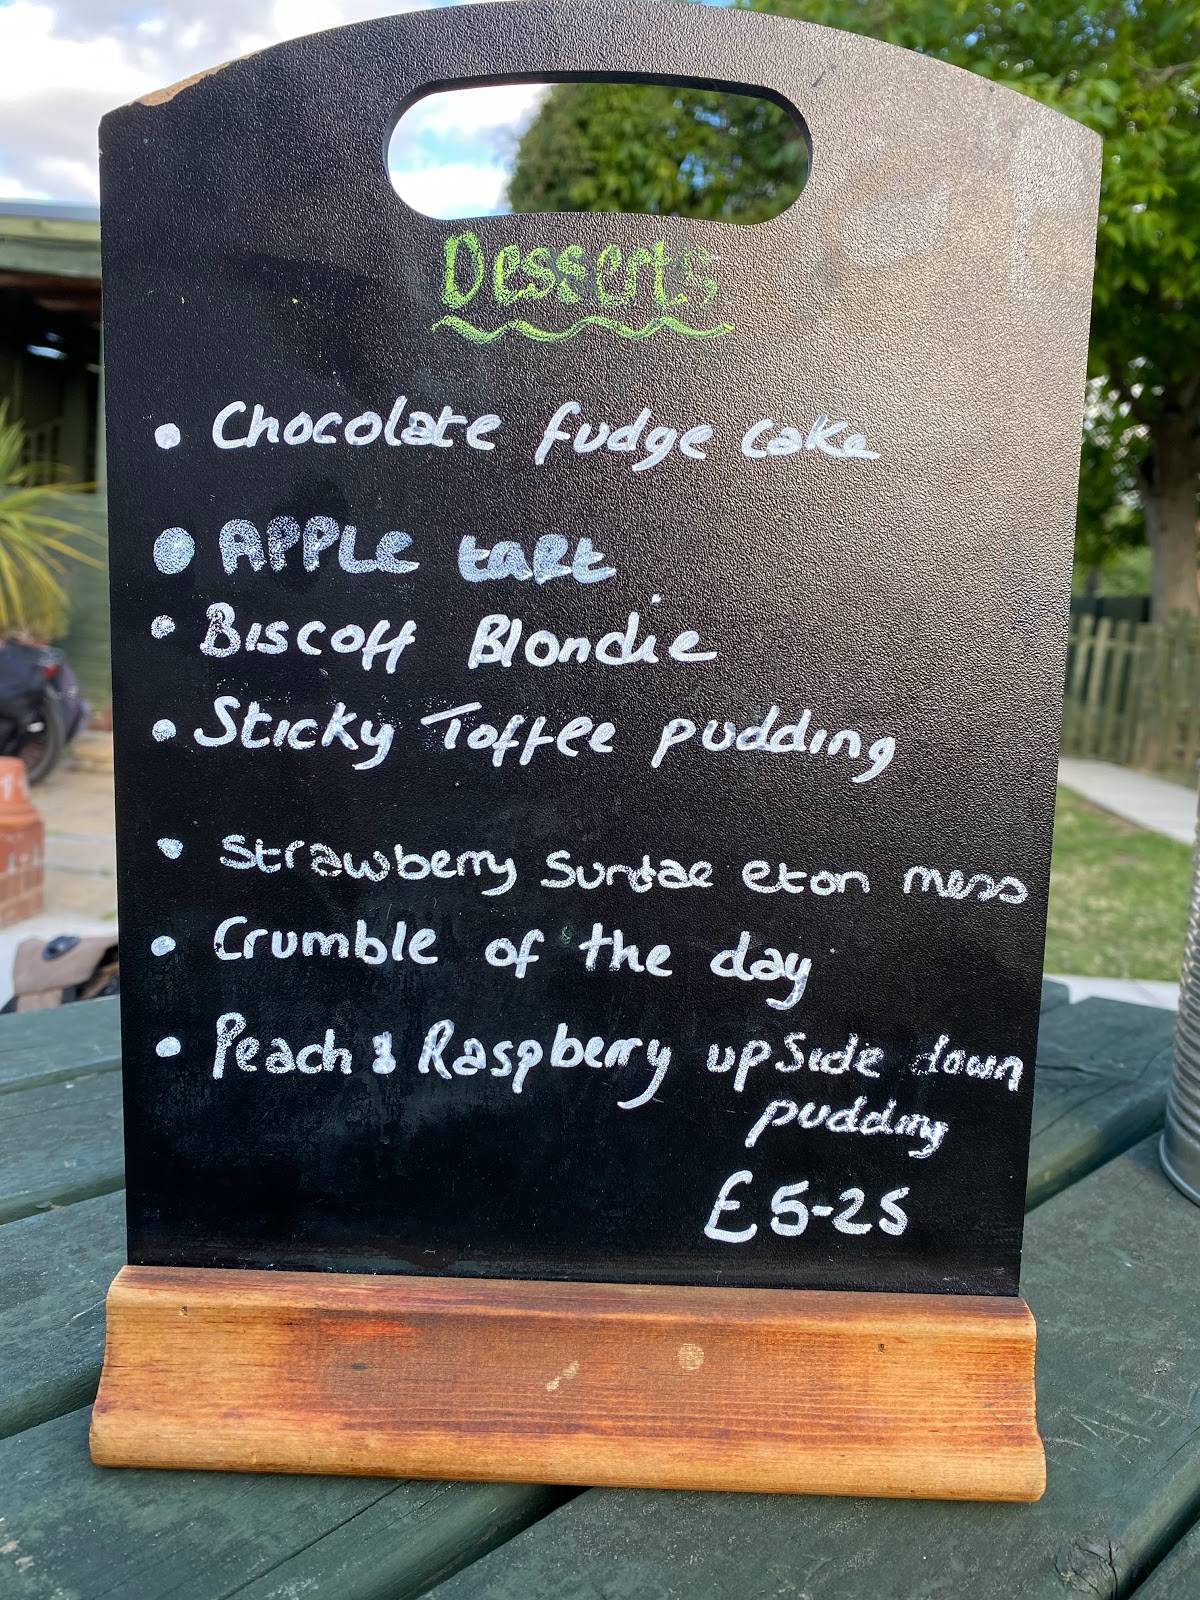 Desserts
• Chocolate fudge cake
• APPLE taRt
• Biscoff Blondie
• Sticky Toffee pudding
• Strawberry Sundae eton mess
• Crumble of the day
• Peach & Raspberry upside down
pudding
£5-25